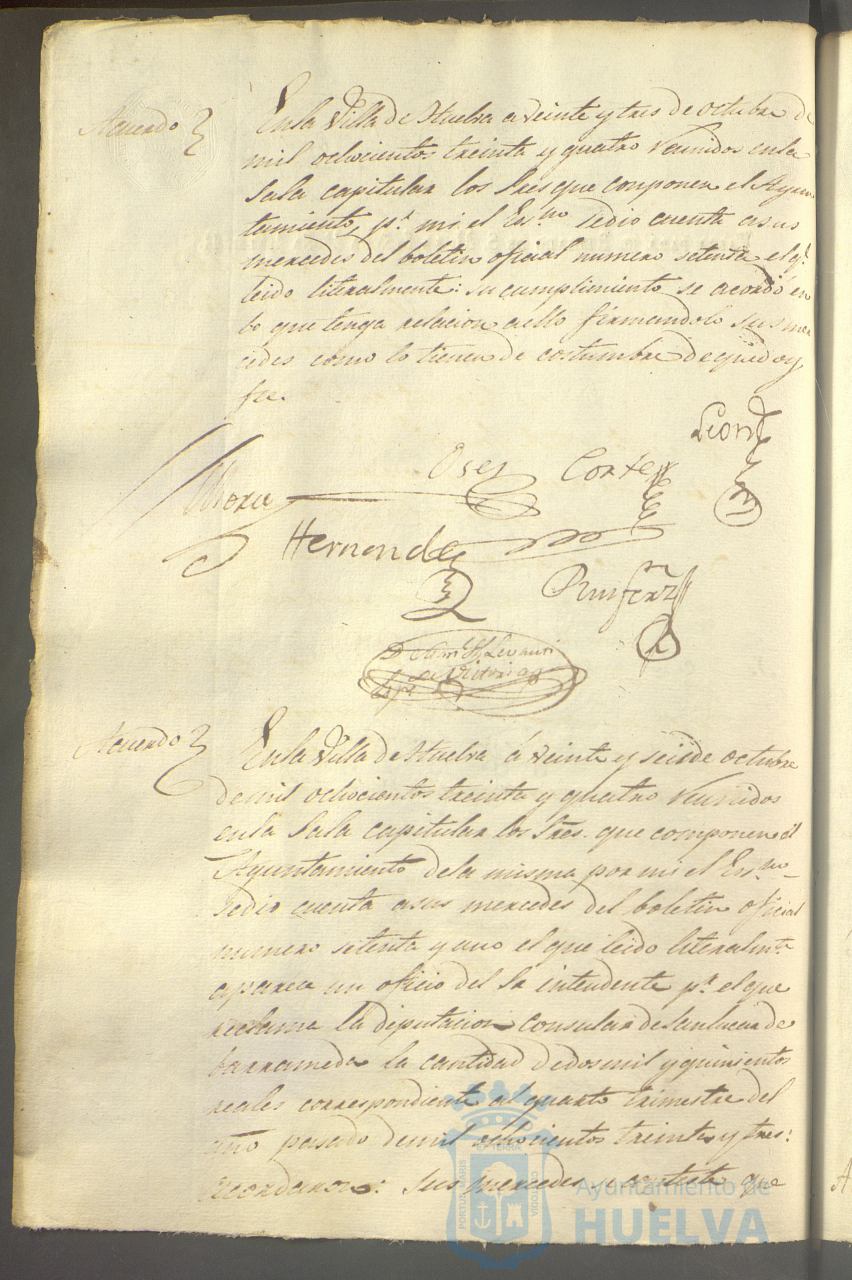 Acuerdo
En la Villa de Huelva a veinte y tres de octubre de
mil ochocientos treinta y quatro reunidos en la
Sala capitular los Sres que conponen el Ayun
tamiento, pr. mi el Esno. se dio cuenta a sus
mercedes del boletin oficial numero setenta el qe.
leido literalmente: su cumplimiento se acordó en
lo que tenga relacion a ello firmandolo sus mer
cedes como lo tienen de costumbre de que doy
fee.
Leon
Mora Oses Cortes
Hernandez
Ruifernz
Acuerdo
En la Villa de Huelva á veinte y seis de octubre
de mil ochocientos treinta y quatro reunidos
en la Sala capitular los Sres. que componen el
Ayuntamiento de la misma por mi el Esno.
se dio cuenta a sus mercedes del boletin oficial
numero setenta y uno el que leido literalmte.
aparece un oficio del Sr intendente pr. el que
reclama la diputacion consular de Sanlucar de
barrameda la cantidad de dos mil y quinientos
reales correspondiente al quarto trimestre del
año pasado de mil ochocientos treinta y tres:
acordaron: sus mercedes se conteste que
Ayuntamiento de
HUELVA